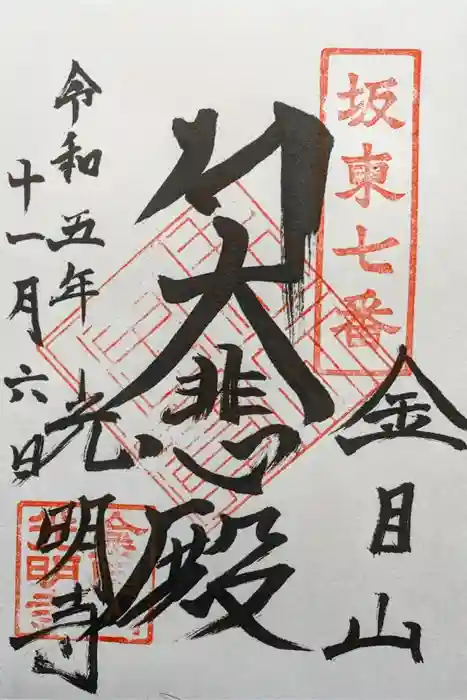 坂東七番
金目山
大悲殿
令和五年
十一月六日
光明寺